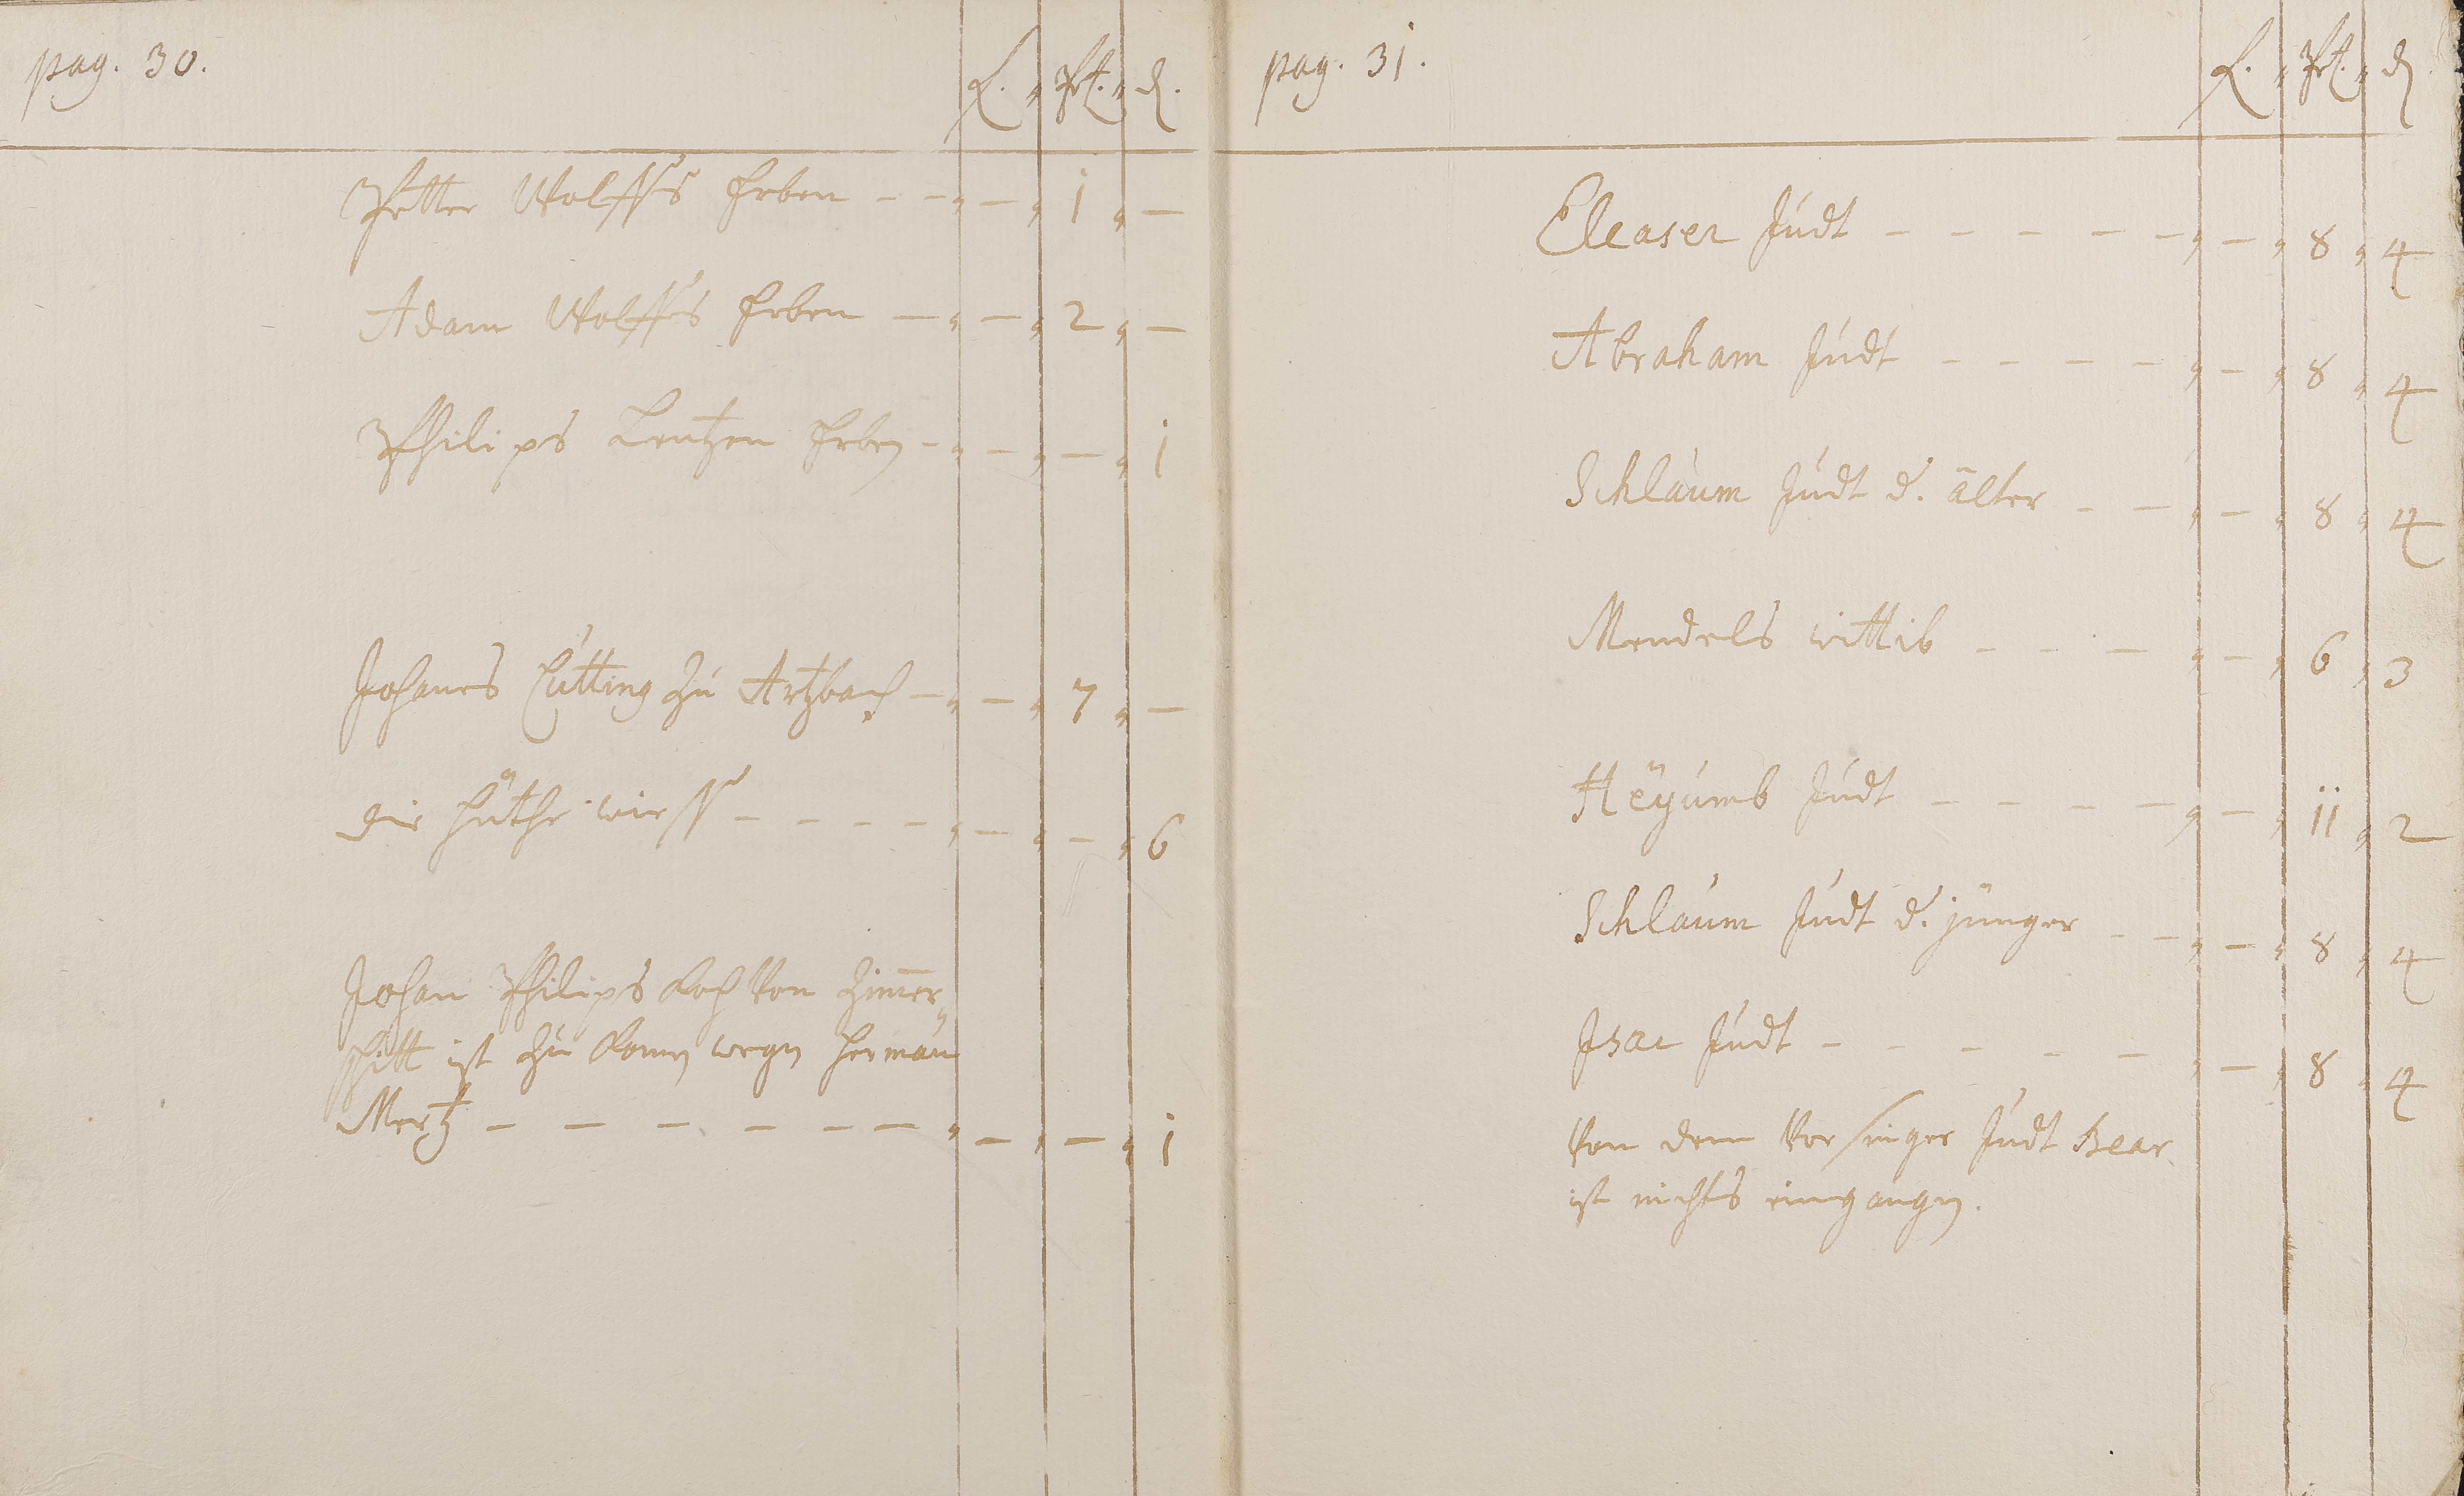 pag. 30.
f. pet. d.
Petter Wolffs Erben – – – 1 –
Adam Wolffs Erben – – 2 –
Philips Lentzen Erben – – – 1
Johanes Lutting zu Artzbach – – 7 –
die Huthe wiess – – – – – – 6
Johan Philips Koch von Zimer„
schitt ist zu Komen wegen Herman
Mertz – – – – – – – – 1
pag. 31.
f. pet. d
Eleaser Judt – – – – – – 8 4
Abraham Judt – – – – – 8 4
Schlaum Judt d. älter – – – 8 4
Mendels wittib – – – – 6 3
Heyumb Judt – – – – – 11 2
Schlaum Judt d. jünger – – – 8 4
Isac Judt – – – – – – 8 4
Von dem Vorsinger Judt Bear
ist nichts eingangen.